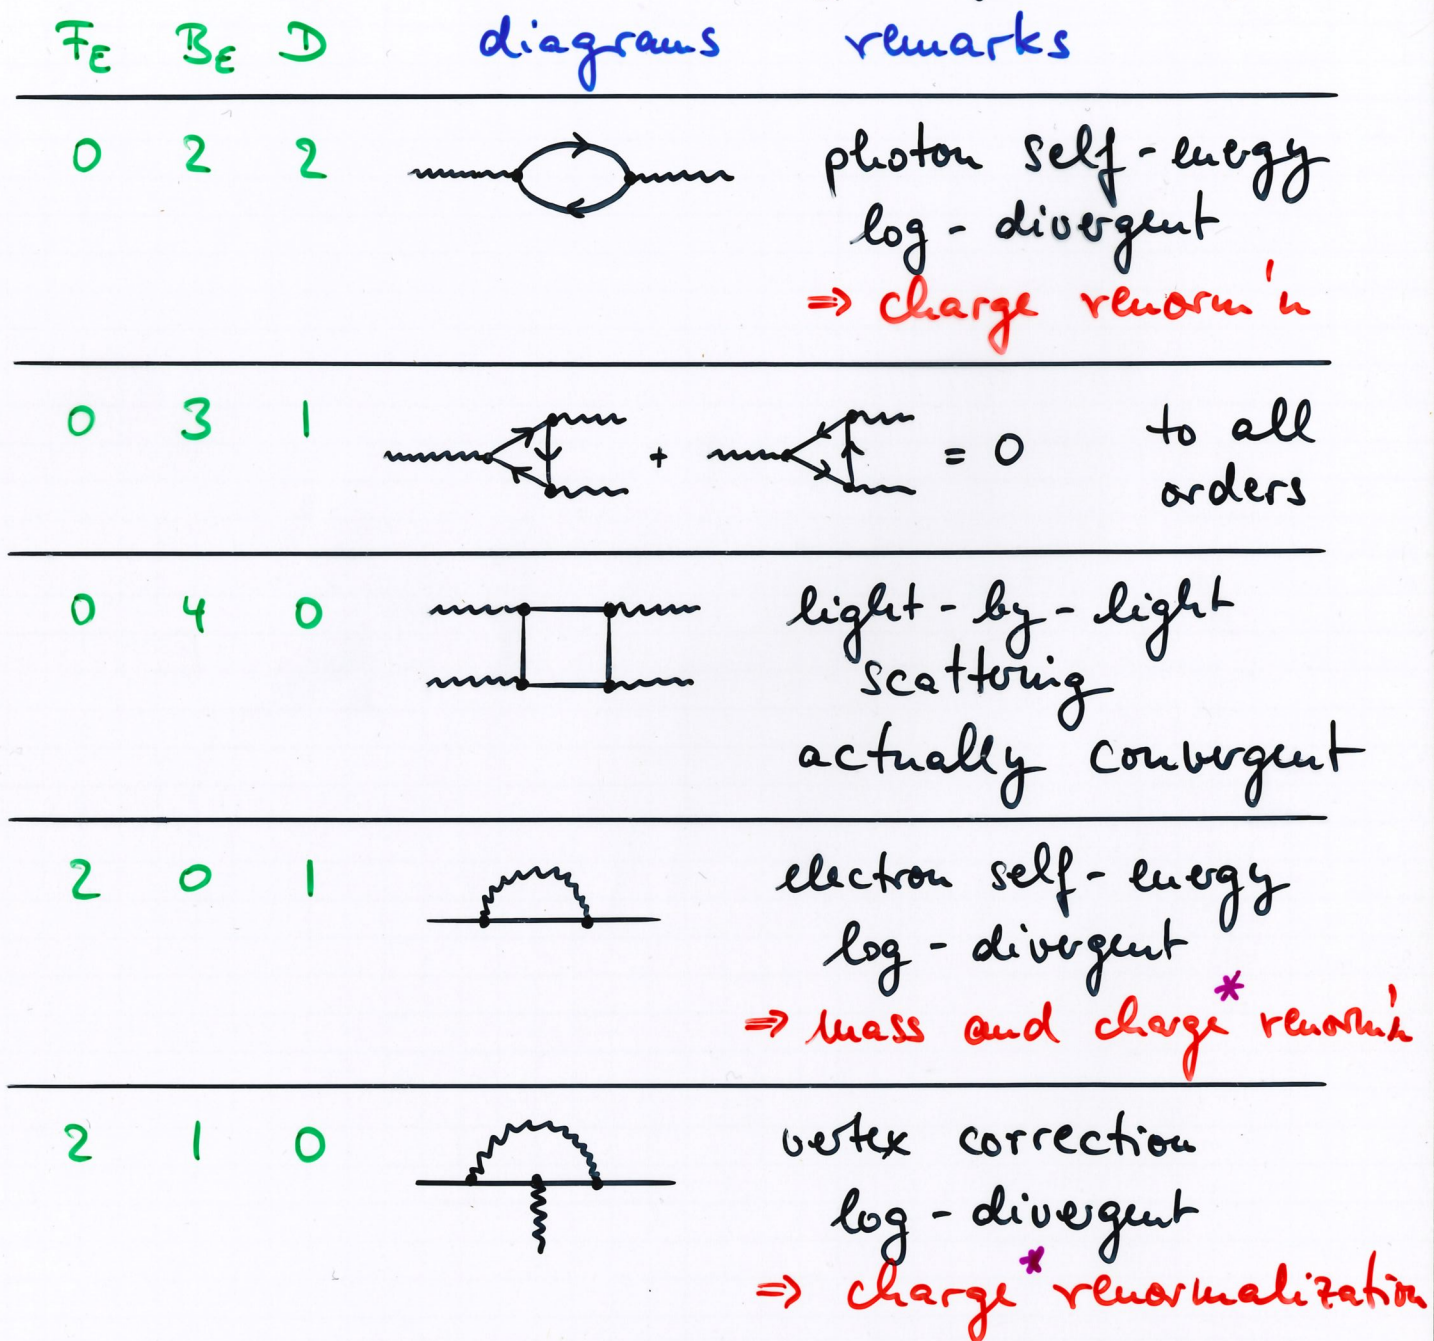 F_E B_E D diagrams remarks
0 2 2 photon self-energy
log-divergent
⇒ charge renorm'n
0 3 1 + = 0 to all
orders
0 4 0 light-by-light
scattering
actually convergent
2 0 1 electron self-energy
log-divergent
⇒ mass and charge* renorm'n
2 1 0 vertex correction
log-divergent
⇒ charge* renormalization